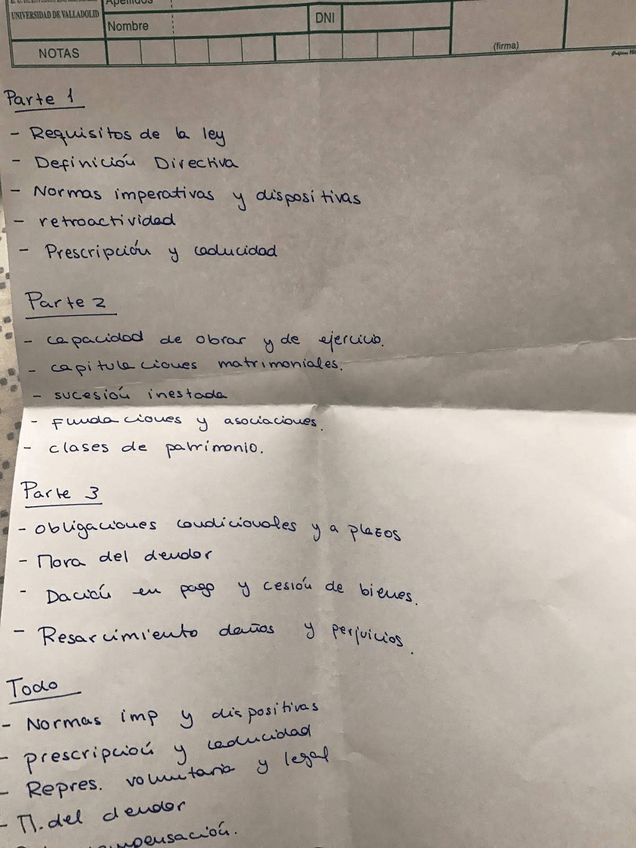 Apellidos
UNIVERSIDAD DE VALLADOLID
Nombre
DNI
NOTAS
(firma)
Parte 1
- Requisitos de la ley
- Definición Directiva
- Normas imperativas y dispositivas
- retroactividad
- Prescripción y caducidad
Parte 2
- capacidad de obrar y de ejercicio.
- capitulaciones matrimoniales.
- sucesión inestada
- Fundaciones y asociaciones.
- clases de patrimonio.
Parte 3
- Obligaciones condicionales y a plazos
- Mora del deudor
- Dación en pago y cesión de bienes.
- Resarcimiento daños y perjuicios.
Todo
- Normas imp y dispositivas
- prescripción y caducidad
- Repres. voluntaria y legal
- M. del deudor
compensación.